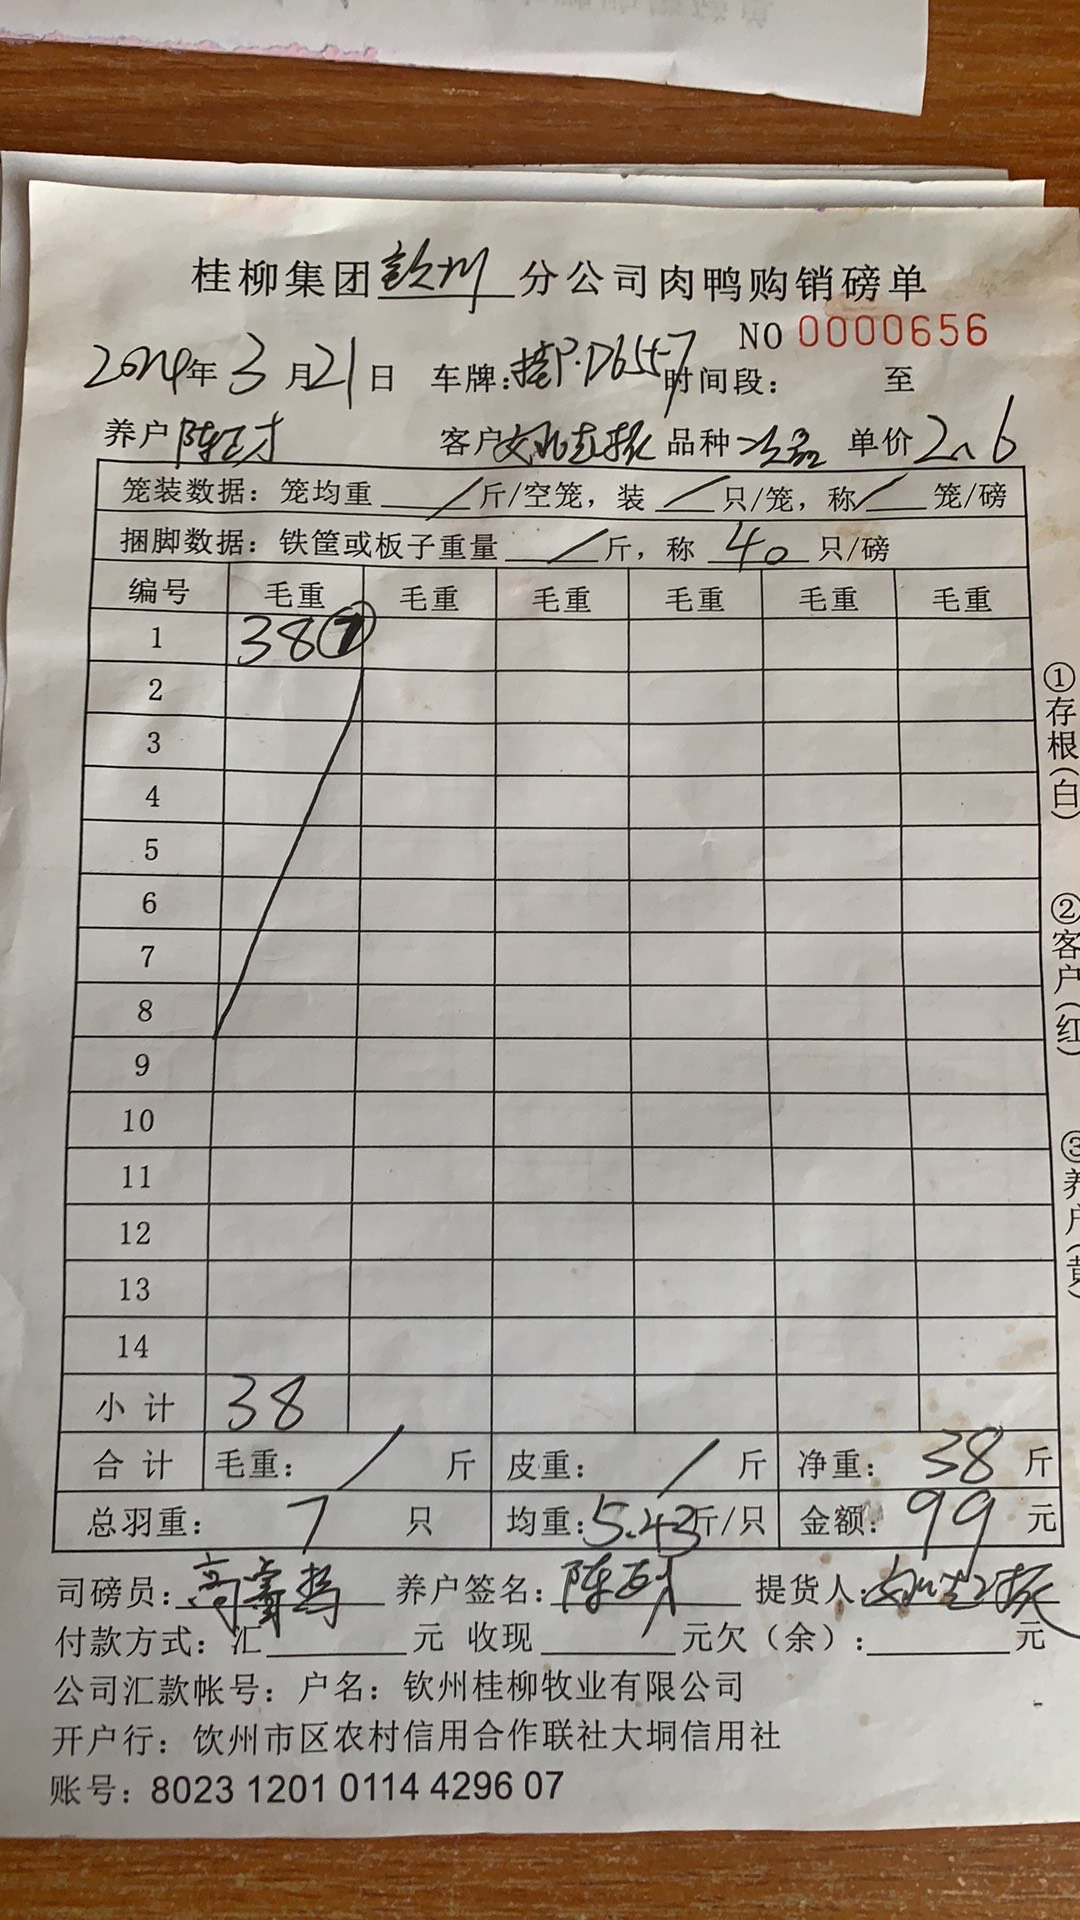 桂柳集团钦州分公司肉鸭购销磅单
NO 0000656
2024年3月21日 车牌:桂P·D6557 时间段: 至
养户 陈 才 客户 品种 次品 单价 2.6
笼装数据:笼均重 / 斤/空笼,装 / 只/笼,称 / 笼/磅
捆脚数据:铁筐或板子重量 / 斤,称 40 只/磅
编号 毛重 毛重 毛重 毛重 毛重 毛重
1 38 ⑦
2
3
4
5
6
7
8
9
10
11
12
13
14
小计 38
合计 毛重: / 斤 皮重: / 斤 净重: 38 斤
总羽重: 7 只 均重:5.43斤/只 金额: 99 元
司磅员: 高 养户签名: 陈 才 提货人:
付款方式:汇 元 收现 元欠(余): 元
公司汇款帐号:户名:钦州桂柳牧业有限公司
开户行:饮州市区农村信用合作联社大垌信用社
账号:8023 1201 0114 4296 07
①存根(白)
②客户(红)
③养户(黄)